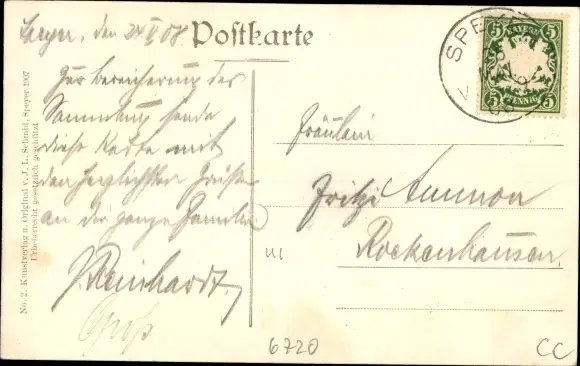 Speyer, den 24 V 08
Postkarte
Zur Bereicherung der
Sammlung sende
diese Karte mit
den herzlichsten Grüßen
an die ganze Familie
J. Reinhardt.
Groß
Fräulein
Fritzi Ammon
Rockenhausen.
III
6720
CC
No. 2. Kunstverlag u. Original v. J. L. Schmid, Speyer 1907
Urheberrecht gesetzlich geschützt
SPEYER
BAYERN
5 5
5 PFENNIG 5